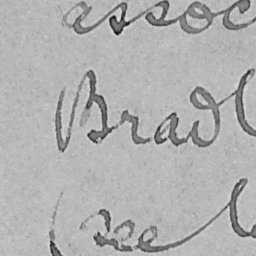 assoc
Bradl
(see